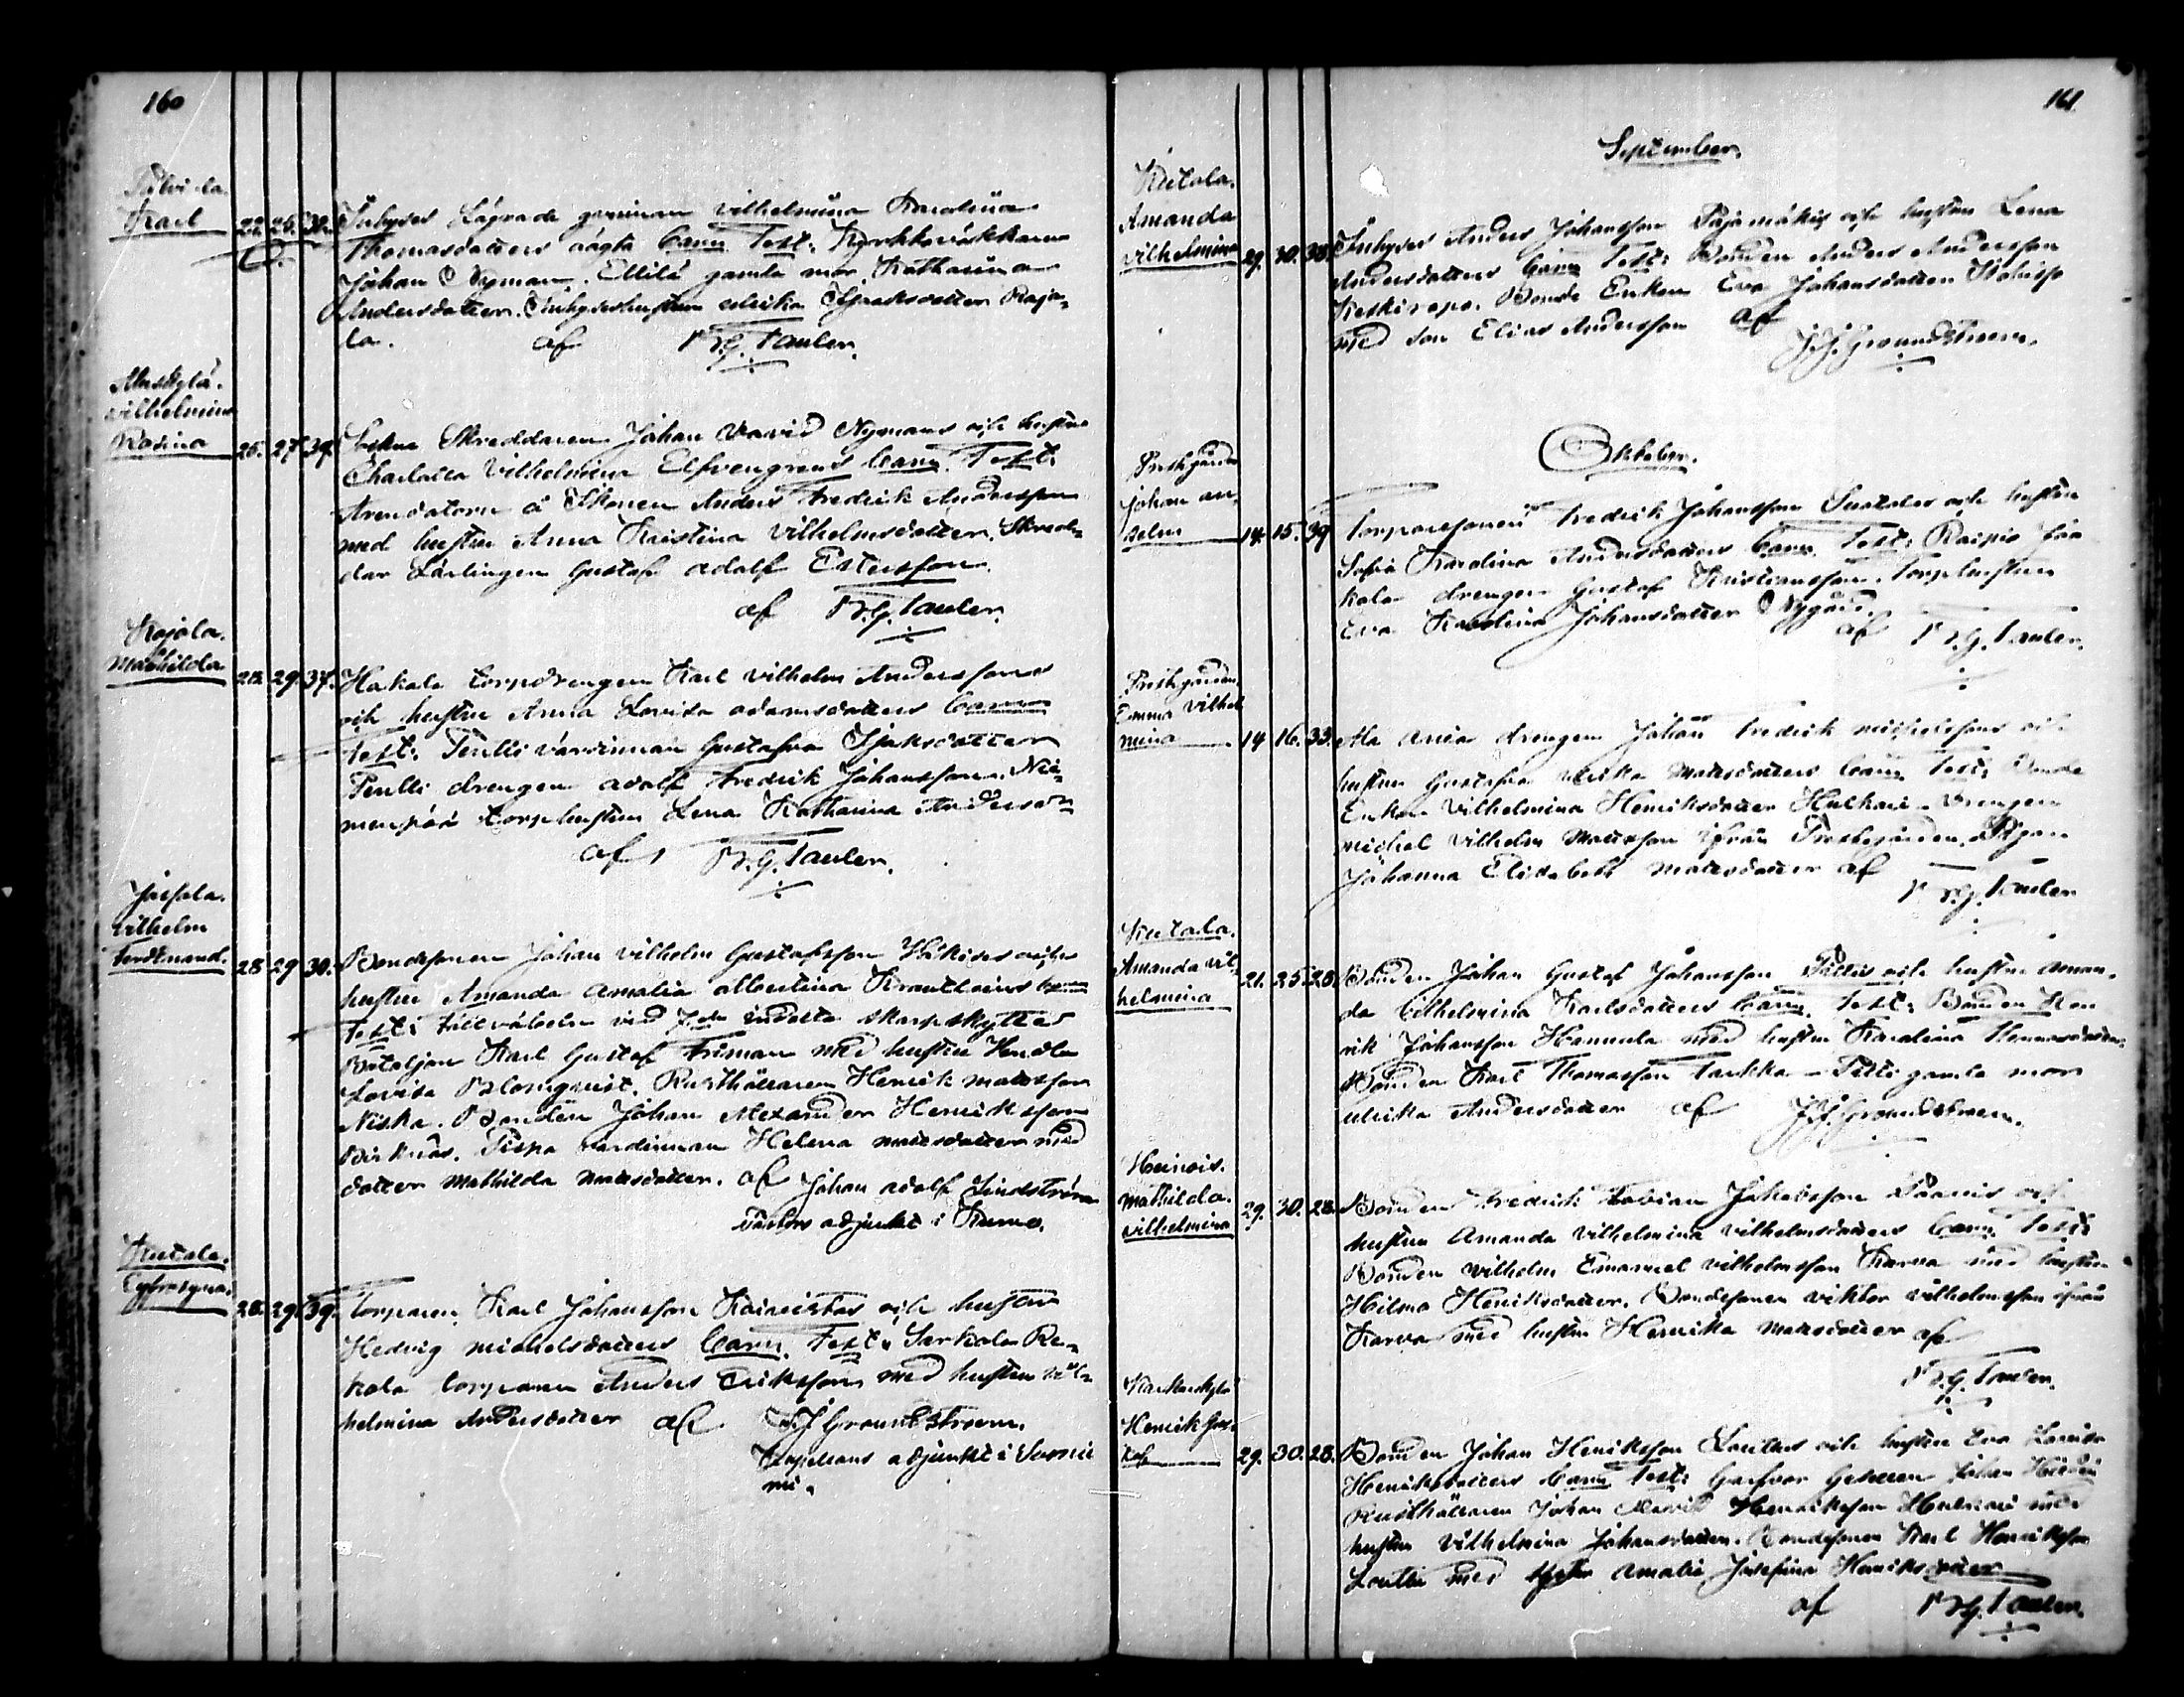 160
Karl 22. 25. 32. Inhyses Lägrade qvinnan Vilhelmina Karolina
Thomasdotters oägta barn Test: Kyrkkoväkkaren
Johan Nyman. Ellilä gamla mor Katharina
Andersdotter. Inhyseshustrun Ulrika Isaaksdotter Raja-
la. af B.G. Tauler.
Vilhelmina
Rosina 26. 27. 39. Sokne Skreddaren Johan David Nymans och hustru
Charlotta Vilhelmina Elfvengrens barn. Test:
Arendatorn å Skomen Anders Fredrik Andersson
med hustru Anna Kristina Vilhelmsdotter. Skred-
dar Lärlingen Gustaf Adolf Estersson.
af B.G. Tauler.
Kojola.
Mathilda 28. 29. 37. Hakala torpdrengen Karl Vilhelm Anderssons
och hustru Anna Lovisa Adamsdotters barn
Test: Pentti värdinnan Gustafva Isaksdotter
Pentti drengen Adolf Fredrik Johansson. Nie-
menpää torphustrun Lena Katharina Andersdr
af B.G. Tauler.
Vilhelm
Ferdinand. 28 29 30. Bondesonen Johan Vilhelm Gustafsson Häkises och
hustru Amanda Amalia Albertina barn
Test: Fältväbeln vid indelta skarpskytte
Bataljon Karl Gustaf Friman med hustru Hendla
Lovisa Blomqvist. Rusthållaren Henrik Matsson
Niska. Bonden Johan Alexander Henriksson
Pispa värdinnan Helena Matsdotter med
dotter Mathilda Matsdotter. af Johan Adolf Lindström
Pastors adjunkt i Kumo.
Kutala.
Eyfrosyna. 28. 29. 39. Torparen Karl Johansson och hustrus
Hedvig Michelsdotters barn. Test: Sarkola Re-
kola torparen Anders Eriksson med hustru Vil-
helmina Andersdotter af J.J. Groundstroem.
Kapellans adjunkt i Suonie
mi.
161
September.
Kutala.
Amanda
Vilhelmina 29. 30. 38. Inhyses Anders Johansson Pajamäkis och hustru Lena
Andersdotters barn Test: Bonden Anders Andersson
Keskirepo. Bonde Enkan Eva Johansdotter
med son Elias Andersson af
J.J. Groundstroem.
Oktober.
Prestgården
Johan An-
selm 14. 15. 39 Torparsonen Fredrik Johansson och hustru
Sofia Karolina Andersdotters barn. Test: Raipio Jaa
kola drengen Gustaf Kristiansson. Torphustrun
Eva Karolina Johansdotter Nygård.
af B.G. Tauler.
Prestgården.
Emma Vilhel
mina 14 16. 33. drengen Johan Fredrik Michelssons och
hustru Gustafva Ulrika Matsdotters barn Test: Bonde
Enkan Vilhelmina Henriksdotter Hulkari. Drengen
Michel Vilhelm Matsson ifrån Prestegården. Pigan
Johanna Elisabeth Matsdotter af
B.G. Tauler
Kutala.
Amanda Vil-
helmina 21. 25. 28. Bonden Johan Gustaf Johansson och hustru Aman-
da Vilhelmina Karlsdotters barn Test: Bonden Hen
rik Johansson Hannula med hustru Karolina Thomasdotter.
Bonden Karl Thomasson gamla mor
Ulrika Andersdotter af J.J. Groundstroem.
Heinois.
Mathilda.
Vilhelmina 29. 30. 28. Bonden Fredrik Fabian Jakobsson och
hustru Amanda Vilhelmina Vilhelmsdotters barn Test:
Bonden Vilhelm Emanuel Vilhelmsson Karva med hustru
Hilma Henriksdotter. Bondesonen Viktor Vilhelmsson ifrån
Karva med hustru Henrika Matsdotter af
B.G. Tauler.
Henrik Gus-
taf 29. 30. 28. Bonden Johan Henriksson och hustru Eva Lovisa
Henriksdotters barn Test: Garfvar Gesällen Johan
Rusthållaren Johan David Henriksson Hulkari med
hustru Vilhelmina Johansdotter. Bondesonen Karl Henriksson
med Amalia Josefina Henriksdotter
af B.G. Tauler.